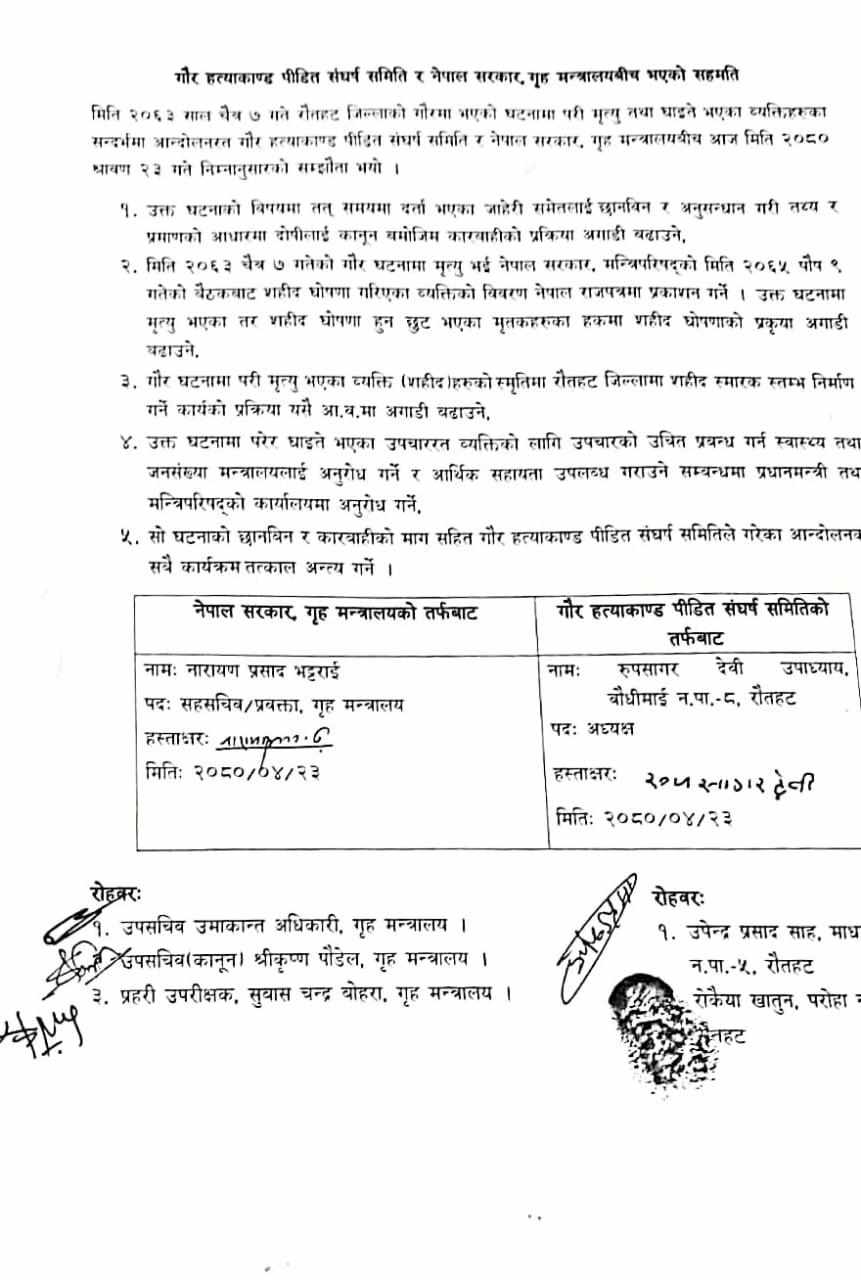 गौर हत्याकाण्ड पीडित संघर्ष समिति र नेपाल सरकार, गृह मन्त्रालयबीच भएको सहमति
मिति २०६३ साल चैत्र ७ गते रौतहट जिल्लाको गौरमा भएको घटनामा परी मृत्यु तथा घाइते भएका व्यक्तिहरुका
सन्दर्भमा आन्दोलनरत गौर हत्याकाण्ड पीडित संघर्ष समिति र नेपाल सरकार, गृह मन्त्रालयबीच आज मिति २०८०
श्रावण २३ गते निम्नानुसारको सम्झौता भयो ।
१. उक्त घटनाको विषयमा तत् समयमा दर्ता भएका जाहेरी समेतलाई छानविन र अनुसन्धान गरी तथ्य र
प्रमाणको आधारमा दोषीलाई कानून बमोजिम कारबाहीको प्रक्रिया अगाडी बढाउने,
२. मिति २०६३ चैत्र ७ गतेको गौर घटनामा मृत्यु भई नेपाल सरकार, मन्त्रिपरिषद्को मिति २०६५ पौष ९
गतेको बैठकबाट शहीद घोषणा गरिएका व्यक्तिको विवरण नेपाल राजपत्रमा प्रकाशन गर्ने । उक्त घटनामा
मृत्यु भएका तर शहीद घोषणा हुन छुट भएका मृतकहरुका हकमा शहीद घोषणाको प्रकृया अगाडी
बढाउने,
३. गौर घटनामा परी मृत्यु भएका व्यक्ति (शहीद)हरुको स्मृतिमा रौतहट जिल्लामा शहीद स्मारक स्तम्भ निर्माण
गर्ने कार्यको प्रक्रिया यसै आ.व.मा अगाडी बढाउने,
४. उक्त घटनामा परेर घाइते भएका उपचाररत व्यक्तिको लागि उपचारको उचित प्रबन्ध गर्न स्वास्थ्य तथा
जनसंख्या मन्त्रालयलाई अनुरोध गर्ने र आर्थिक सहायता उपलब्ध गराउने सम्बन्धमा प्रधानमन्त्री तथ
मन्त्रिपरिषद्को कार्यालयमा अनुरोध गर्ने,
५. सो घटनाको छानविन र कारबाहीको माग सहित गौर हत्याकाण्ड पीडित संघर्ष समितिले गरेका आन्दोलनक
सबै कार्यक्रम तत्काल अन्त्य गर्ने ।
नेपाल सरकार, गृह मन्त्रालयको तर्फबाट
नामः नारायण प्रसाद भट्टराई
पदः सहसचिव/प्रवक्ता, गृह मन्त्रालय
हस्ताक्षरः
मितिः २०८०/०४/२३
गौर हत्याकाण्ड पीडित संघर्ष समितिको
तर्फबाट
नामः रुपसागर देवी उपाध्याय,
बौधीमाई न.पा.-८, रौतहट
पदः अध्यक्ष
हस्ताक्षरः रुपसागर देवी
मितिः २०८०/०४/२३
रोहवरः
१. उपसचिव उमाकान्त अधिकारी, गृह मन्त्रालय ।
उपसचिव(कानून) श्रीकृष्ण पौडेल, गृह मन्त्रालय ।
३. प्रहरी उपरीक्षक, सुवास चन्द्र बोहरा, गृह मन्त्रालय ।
रोहवरः
१. उपेन्द्र प्रसाद साह, माध
न.पा.-५, रौतहट
रोकैया खातुन, परोहा न
रौतहट